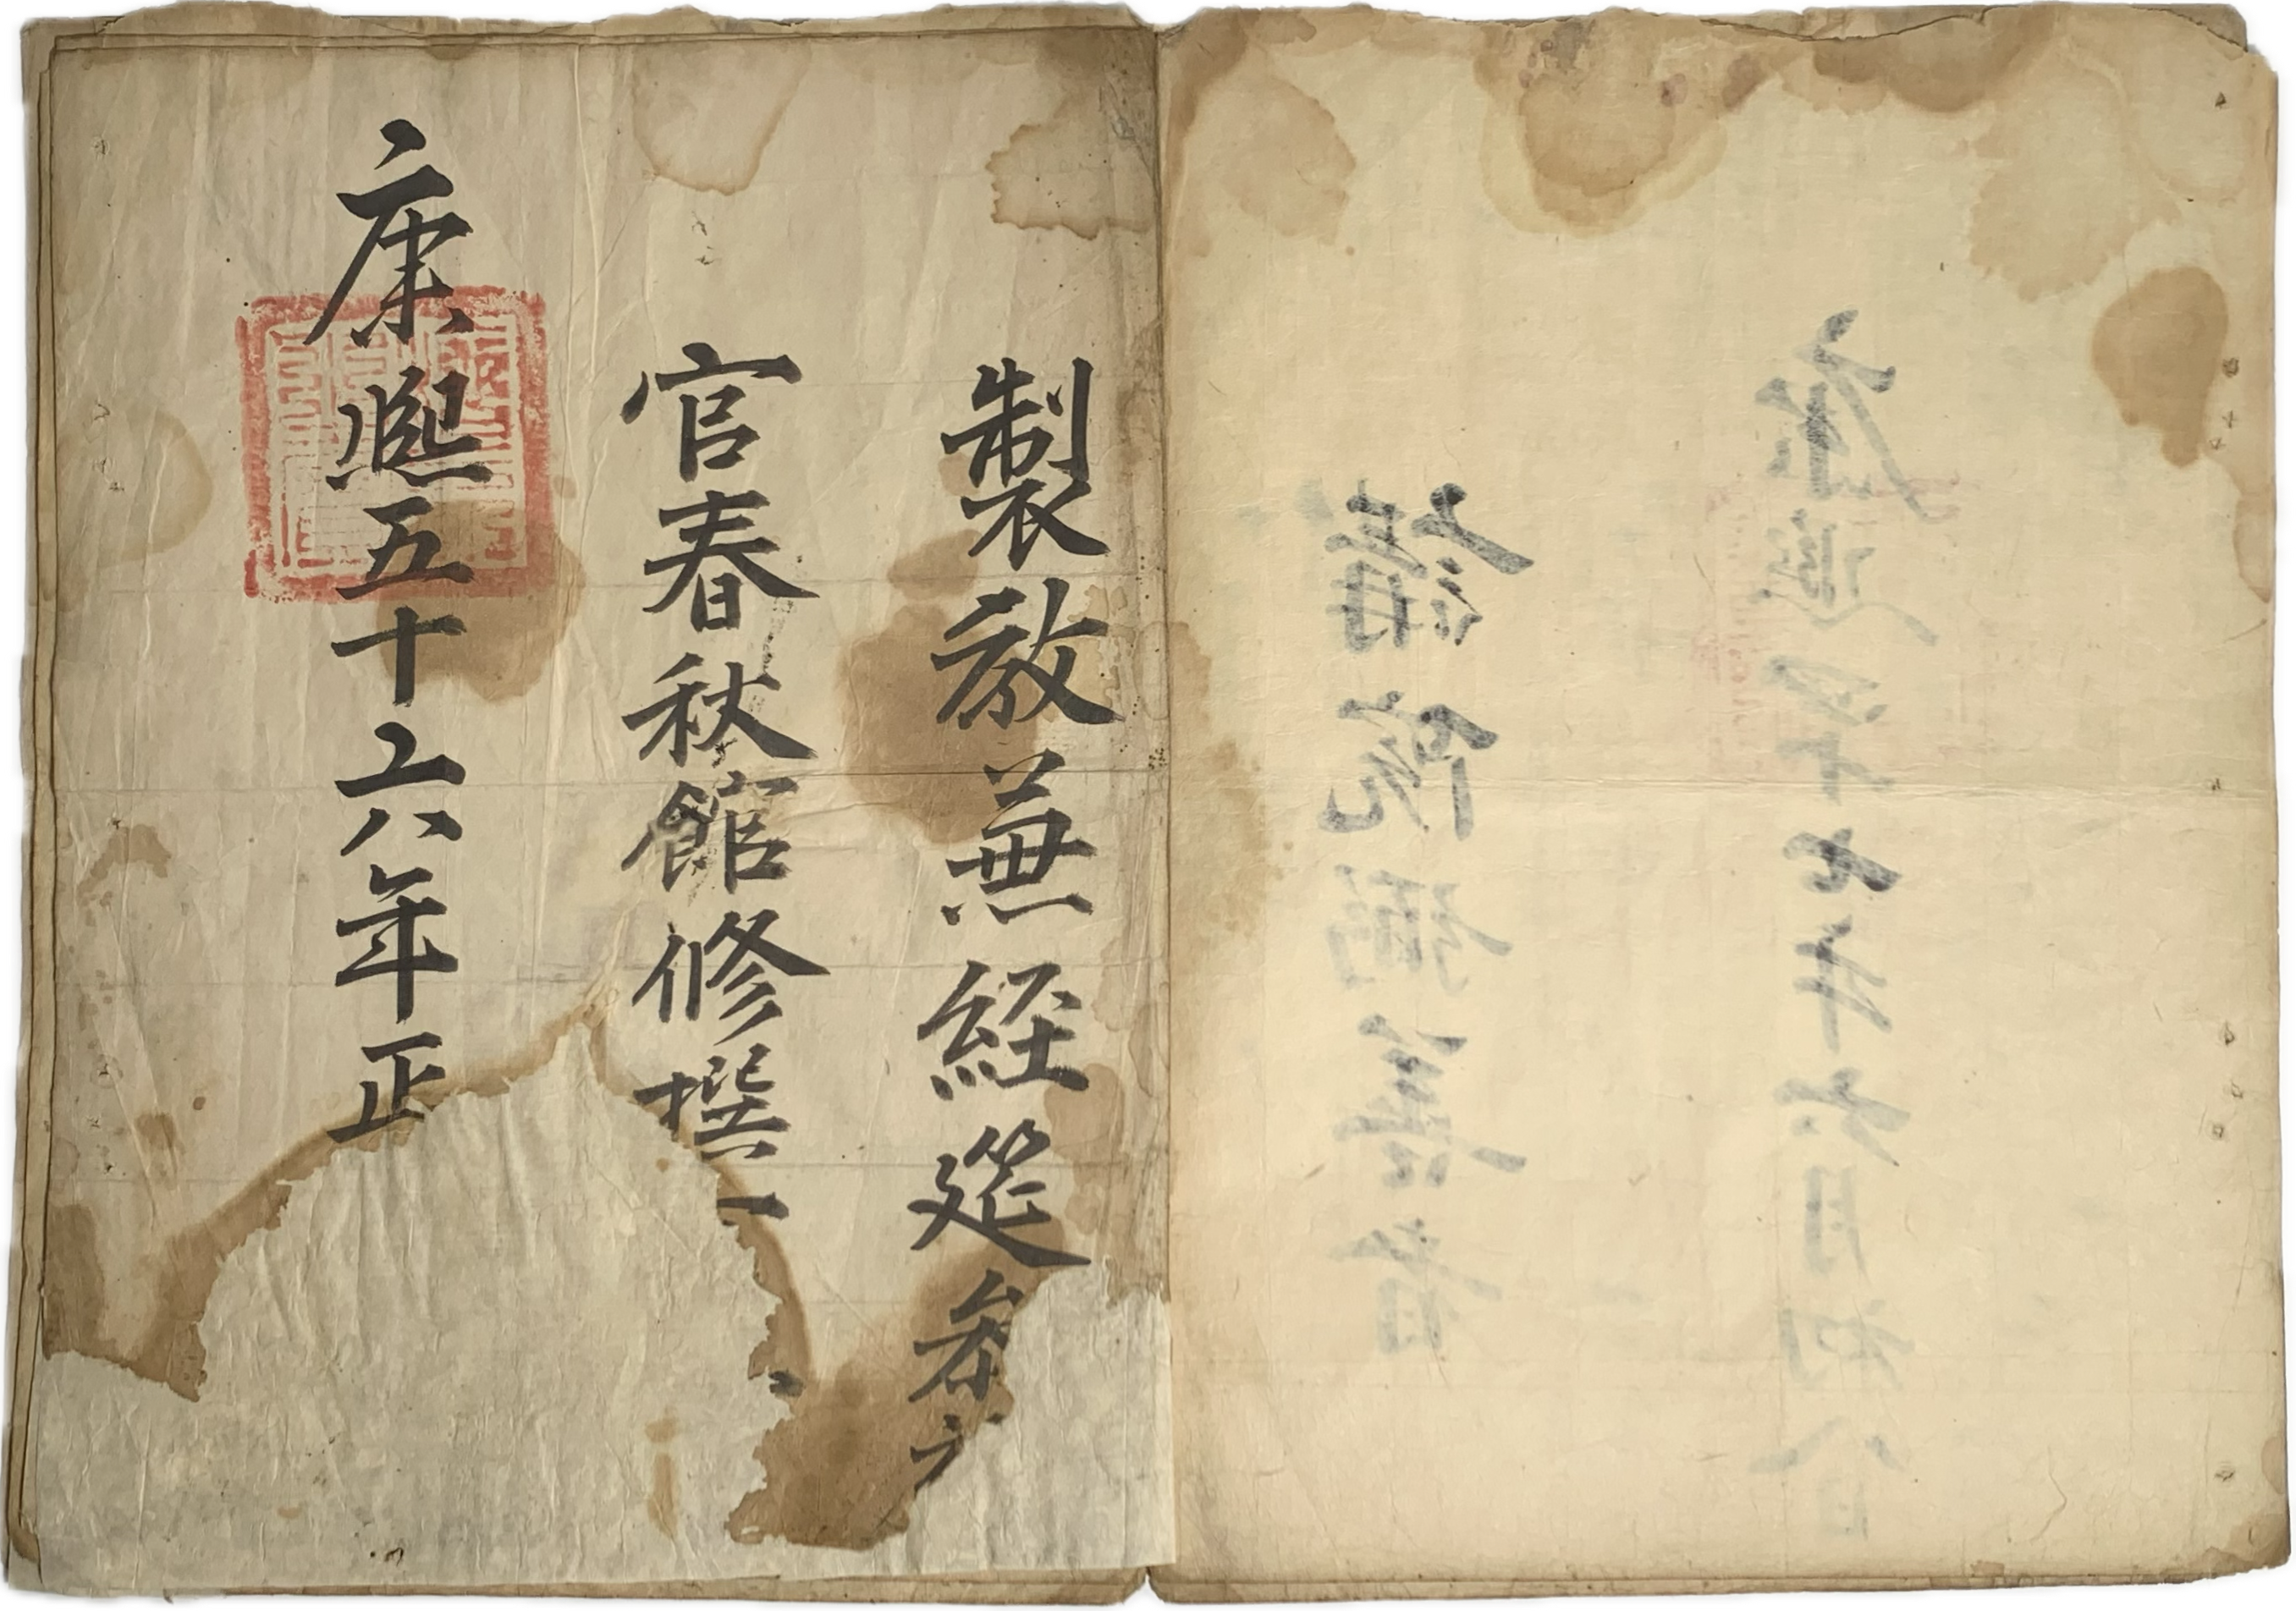 講院弼善者
康熙五十七年六月初八日
製教兼經筵參
官春秋館修撰
康熙五十六年正